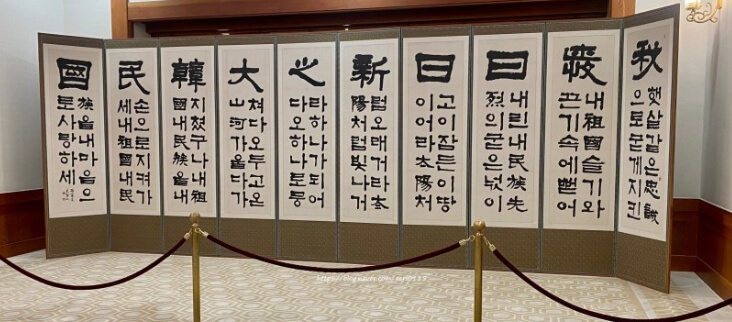 秋 日日新之大韓民國
햇살같은忠誠
으로굳게지킨
내祖國슬기와
끈기속에뻗어
내린내民族先
烈의굳은넋이
고이잠든이땅
이어라太陽처
럼오래거라太
陽처럼빛나거
라하나가되어
다오하나로뭉
쳐다오두고온
山河가울다가
지쳤구나내祖
國내民族을내
손으로지켜가
세내祖國내民
族을내마음으
로사랑하세